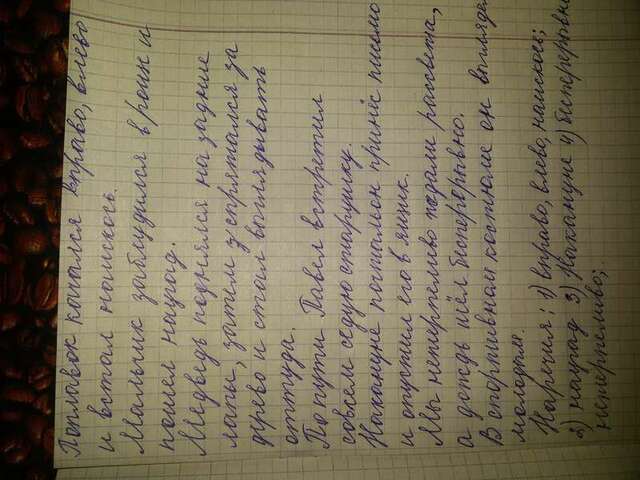 Поплавок качался вправо, влево
и встал наискось.
Мальчик заблудился в роще и
пошел назад.
Медведь поднялся на задние
лапы, затем у спрятался за
дерево и стал выглядывать
оттуда.
По пути Павел встретил
совсем седую старушку.
Накануне почтальон принёс письмо
и опустил его в ящик.
Мы нетерпеливо ждали рассвета,
а дождь шёл беспрерывно.
В спортивном костюме он выгляде
молодым.
Наречия: 1) вправо, влево, наискось;
2) назад 3) Накануне 4) беспрерывно
нетерпеливо;